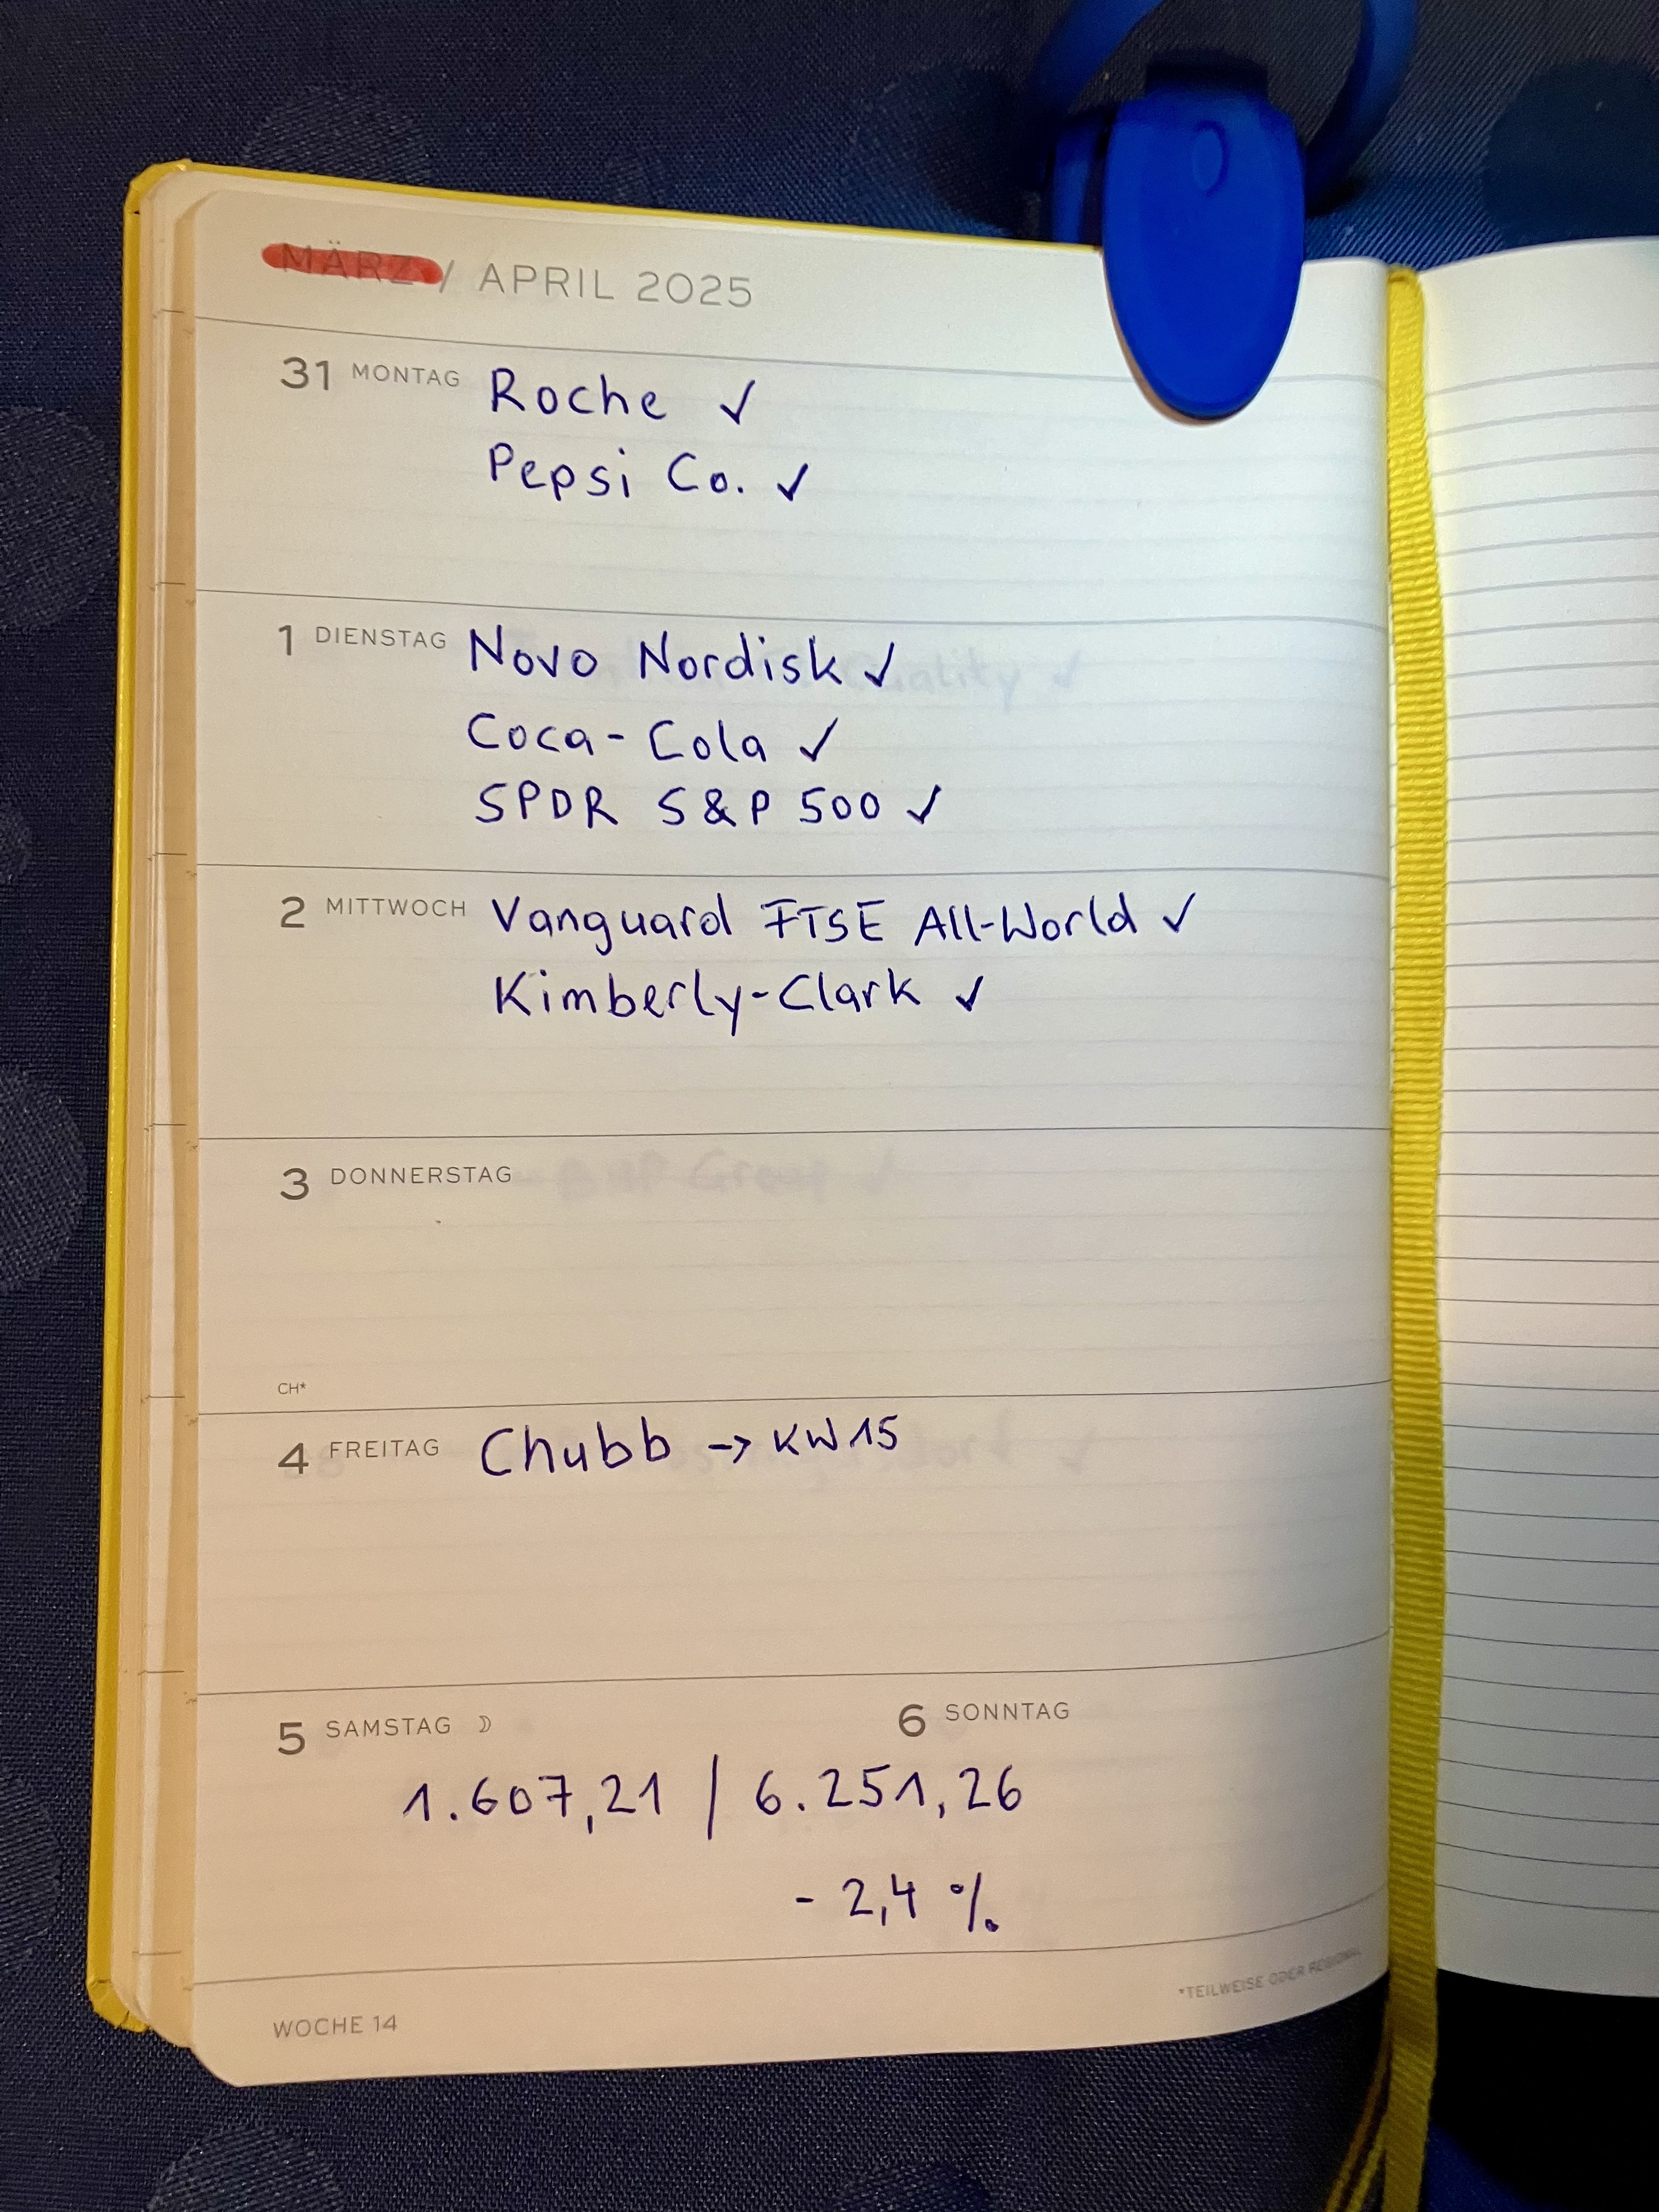 MÄRZ / APRIL 2025
31 MONTAG Roche ✓
Pepsi Co. ✓
1 DIENSTAG Novo Nordisk ✓
Coca-Cola ✓
SPDR S&P 500 ✓
2 MITTWOCH Vanguard FTSE All-World ✓
Kimberly-Clark ✓
3 DONNERSTAG
CH*
4 FREITAG Chubb → KW15
5 SAMSTAG ☽ 6 SONNTAG
1.607,21 / 6.251,26
- 2,4 %
*TEILWEISE ODER REGIONAL
WOCHE 14